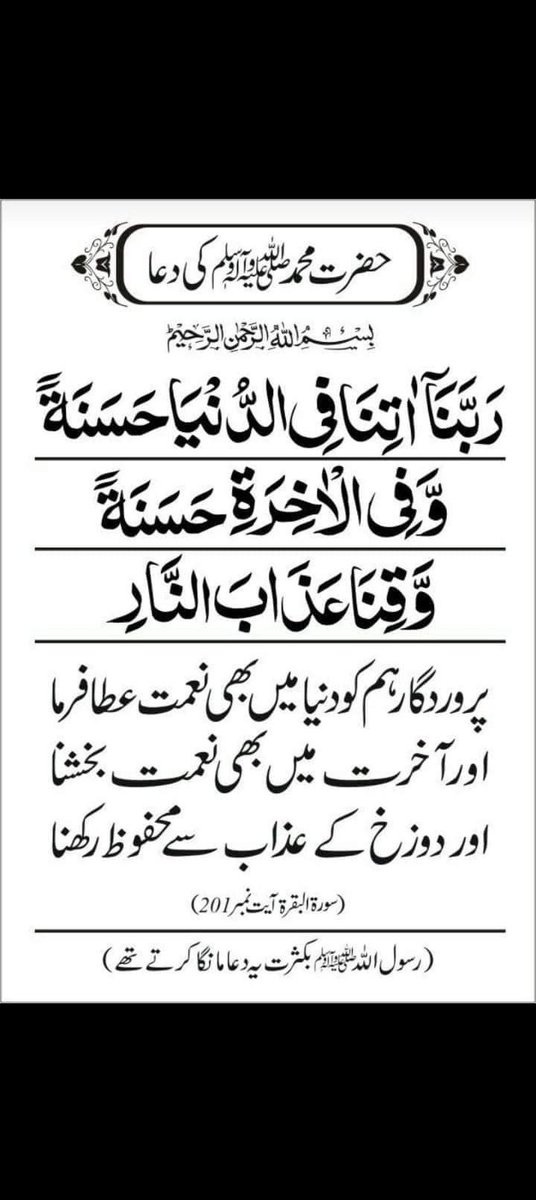 حضرت محمد صلی اللہ علیہ وآلہ وسلم کی دعا
بِسْمِ اللهِ الرَّحْمٰنِ الرَّحِيْمِ
رَبَّنَآ اٰتِنَا فِي الدُّنْيَا حَسَنَةً
وَّفِي الْاٰخِرَةِ حَسَنَةً
وَّقِنَا عَذَابَ النَّارِ
پروردگار ہم کو دنیا میں بھی نعمت عطا فرما
اور آخرت میں بھی نعمت بخشنا
اور دوزخ کے عذاب سے محفوظ رکھنا
(سورۃ البقرۃ آیت نمبر 201)
(رسول اللہ صلی اللہ علیہ وآلہ وسلم بکثرت یہ دعا مانگا کرتے تھے)